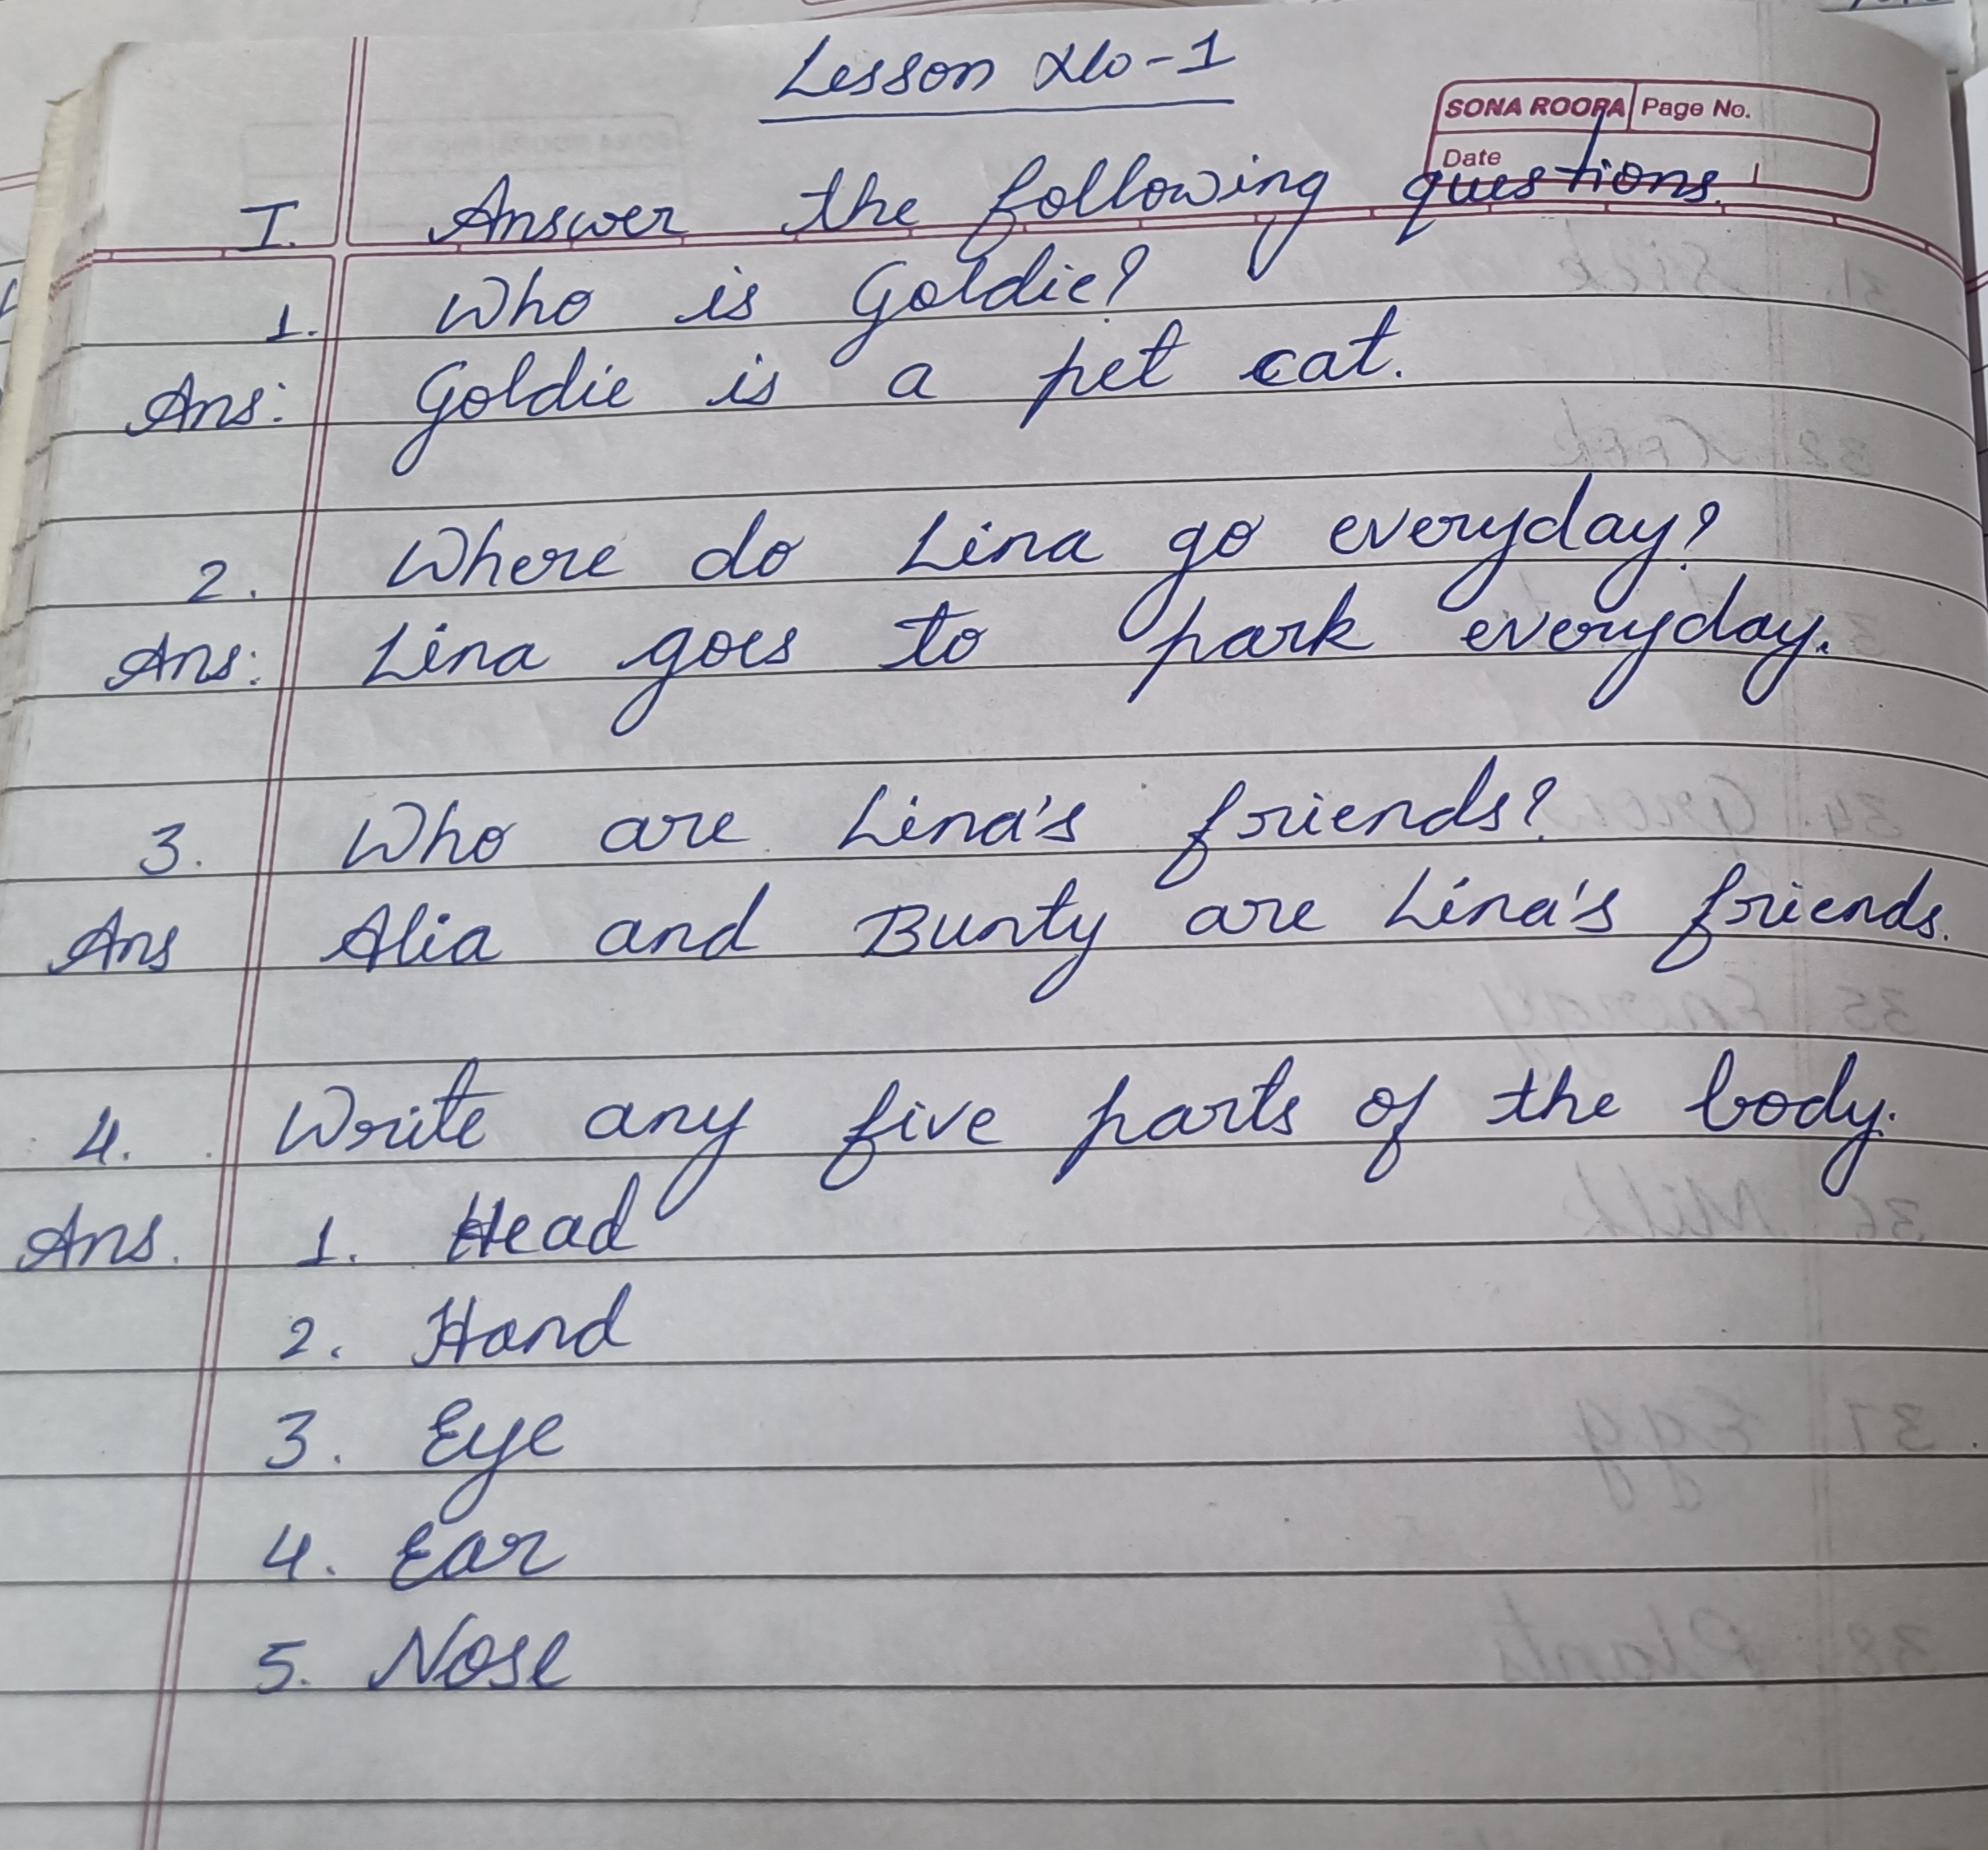 Lesson No-1
SONA ROOPA Page No.
Date
I. Answer the following questions.
1. Who is Goldie?
Ans: Goldie is a pet cat.
2. Where do Lina go everyday?
Ans: Lina goes to park everyday.
3. Who are Lina's friends?
Ans Alia and Bunty are Lina's friends.
4. Write any five parts of the body.
Ans. 1. Head
2. Hand
3. Eye
4. Ear
5. Nose